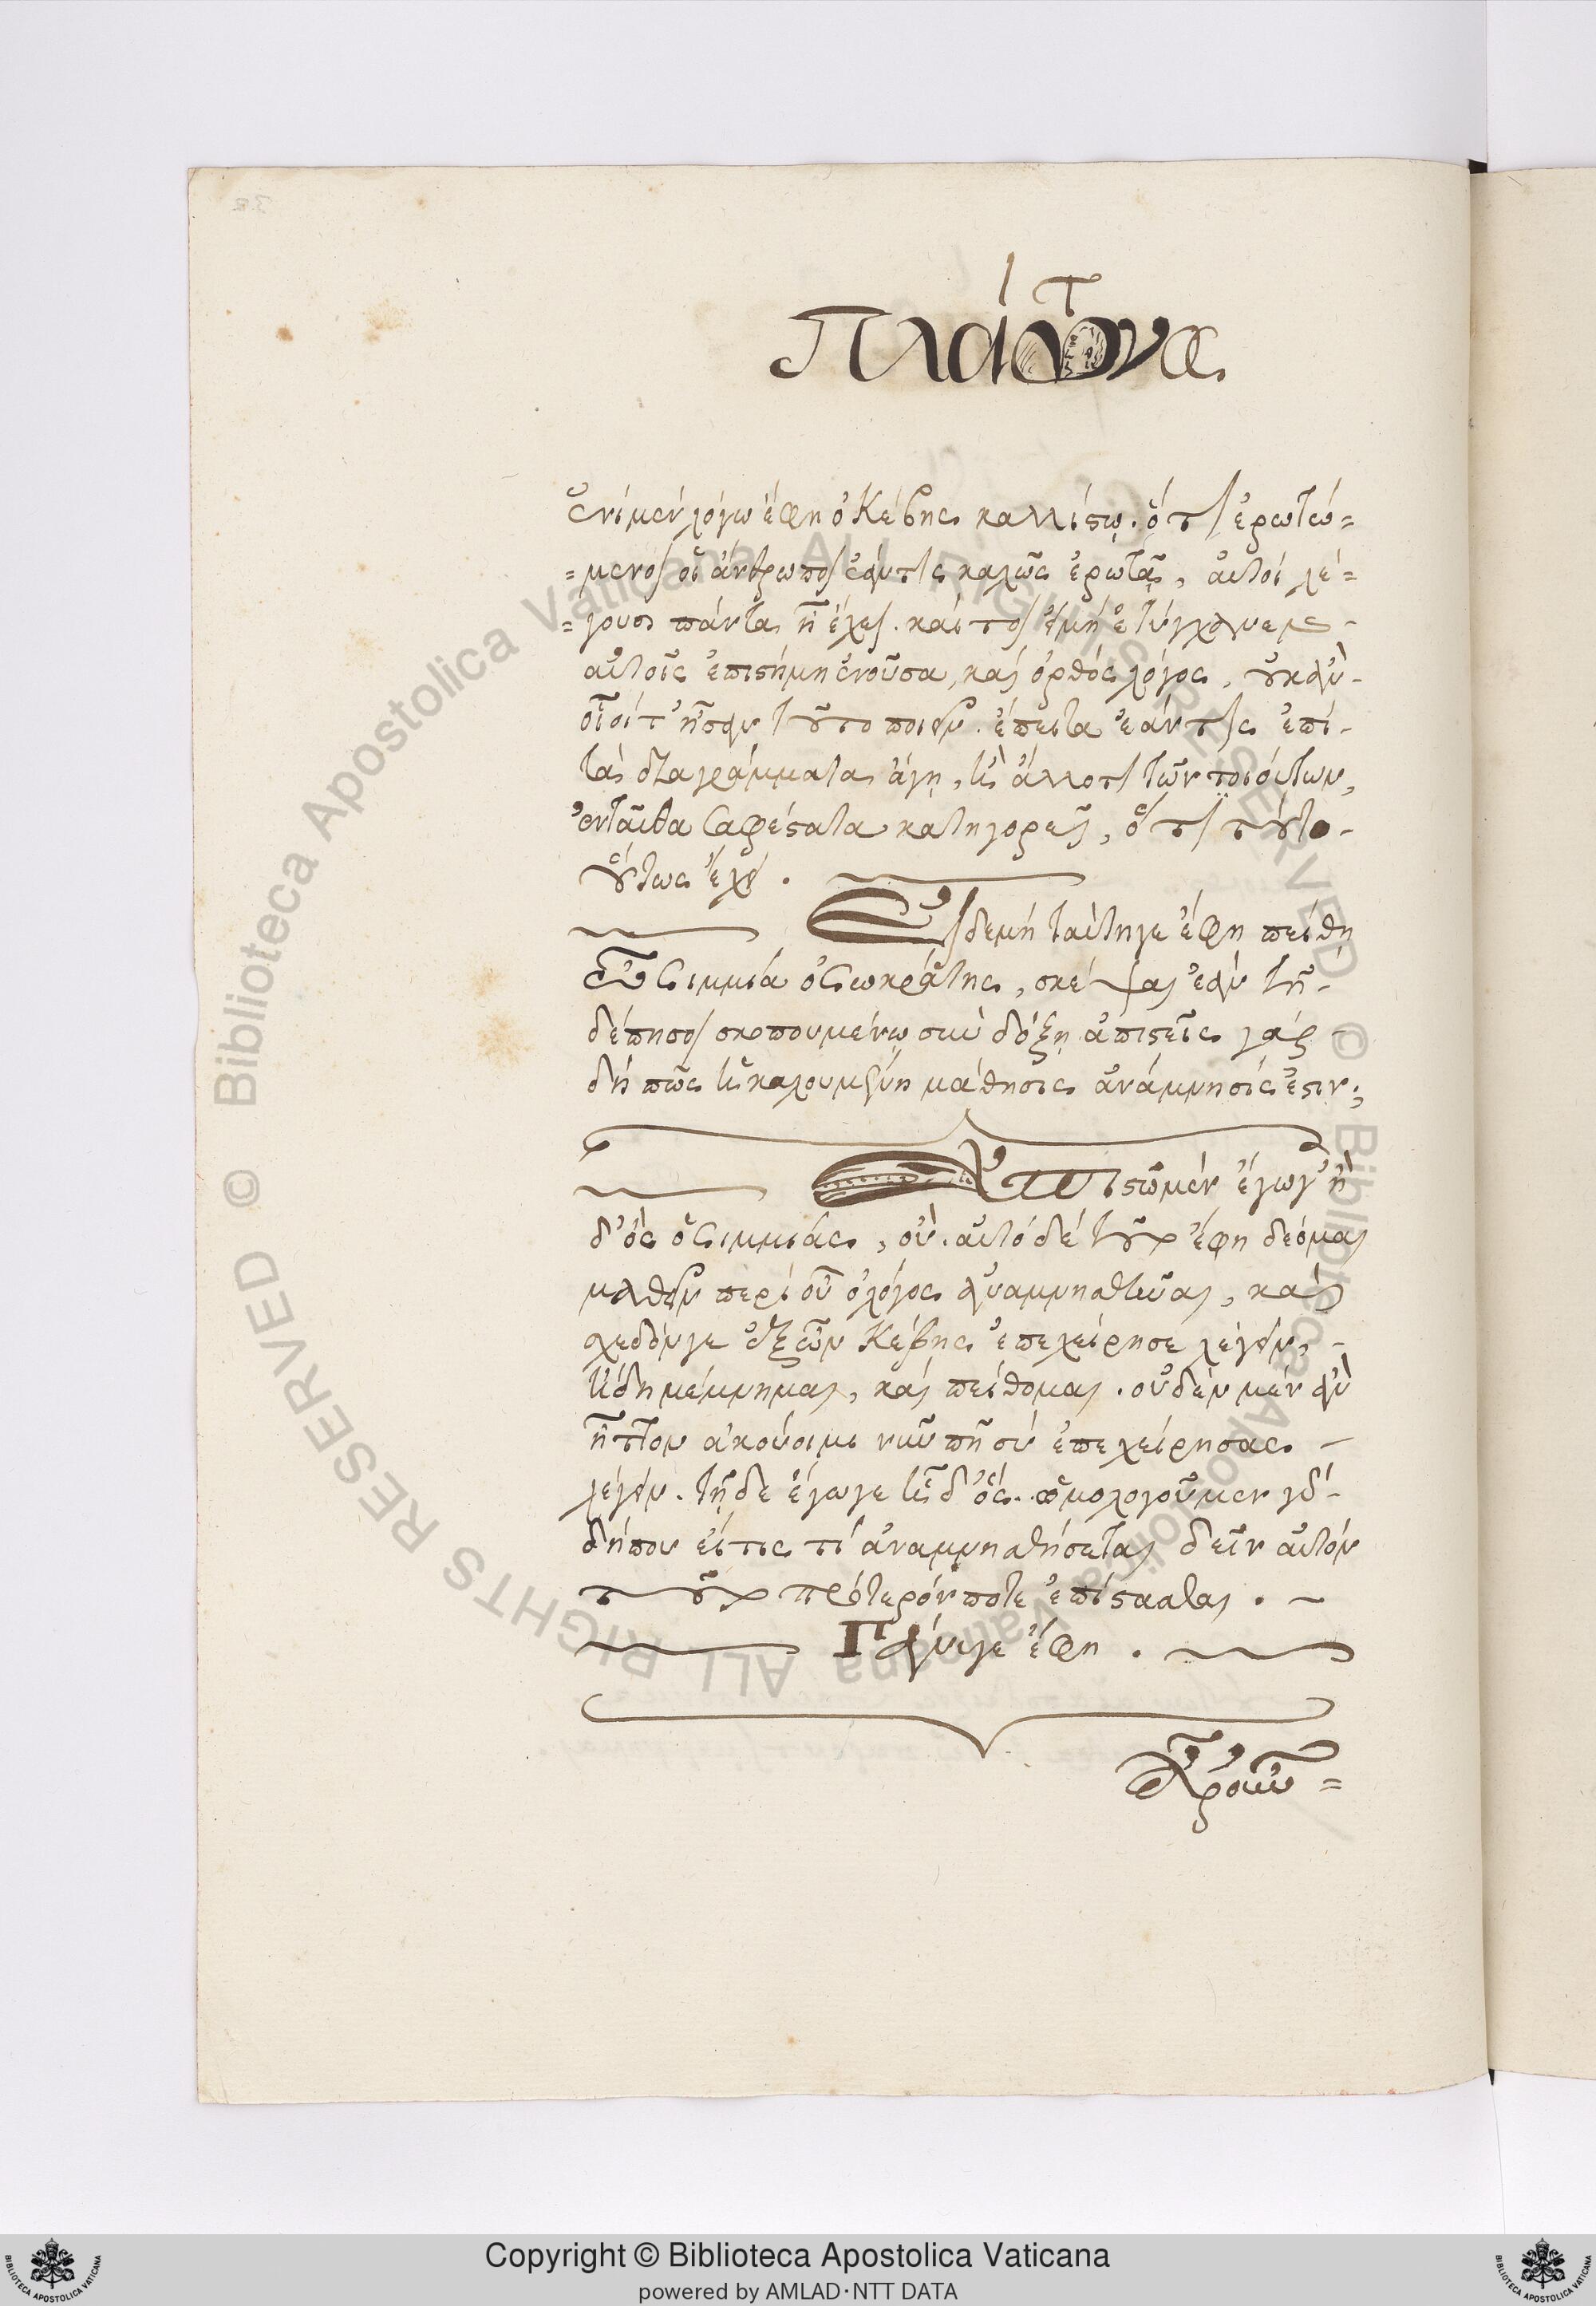 Πλάτωνος
ἑνὶ μὲν λόγῳ ἔφη ὁ Κέβης καλλίστῳ. ὅτι ἐρωτώ=
=μενοι οἱ ἄνθρωποι ἐάν τις καλῶς ἐρωτᾷ, αὐτοὶ λέ=
=γουσι πάντα ᾗ ἔχει. καίτοι εἰ μὴ ἐτύγχανεν
αὐτοῖς ἐπιστήμη ἐνοῦσα, καὶ ὀρθὸς λόγος, οὐκ ἂν
οἷοί τ' ἦσαν τοῦτο ποιεῖν. ἔπειτα ἐάν τις ἐπὶ
τὰ διαγράμματα ἄγῃ, ἢ ἄλλο τι τῶν τοιούτων,
ἐνταῦθα σαφέστατα κατηγορεῖ, ὅτι τοῦτο
οὕτως ἔχει.
Εἰ δὲ μὴ ταύτῃ γε ἔφη πείθῃ
ὦ Σιμμία ὁ Σωκράτης, σκέψαι ἐὰν τῇ
δέ πῃ σοι σκοπουμένῳ συνδόξῃ. ἀπιστεῖς γὰρ
δὴ πῶς ἡ καλουμένη μάθησις ἀνάμνησίς ἐστιν;
Ἀπιστῶ μὲν ἔγωγ' ἦ
δ' ὃς ὁ Σιμμίας, οὔ. αὐτὸ δὲ τοῦτο ἔφη δέομαι
μαθεῖν περὶ οὗ ὁ λόγος ἀναμνησθῆναι, καὶ
σχεδόν γε ἐξ ὧν Κέβης ἐπεχείρησε λέγειν,
ἤδη μέμνημαι, καὶ πείθομαι. οὐδὲν μὲν ἂν
ἧττον ἀκούοιμι νῦν πῇ σὺ ἐπεχείρησας
λέγειν. τῇδε ἔγωγε ἦ δ' ὅς. ὁμολογοῦμεν γὰρ
δήπου εἴ τις τί ἀναμνησθήσεται δεῖν αὐτὸν
τοῦτο πρότερόν ποτε ἐπίστασθαι.
Πάνυ γε ἔφη.
Ἆρ' οὖν=
Copyright © Biblioteca Apostolica Vaticana
powered by AMLAD·NTT DATA